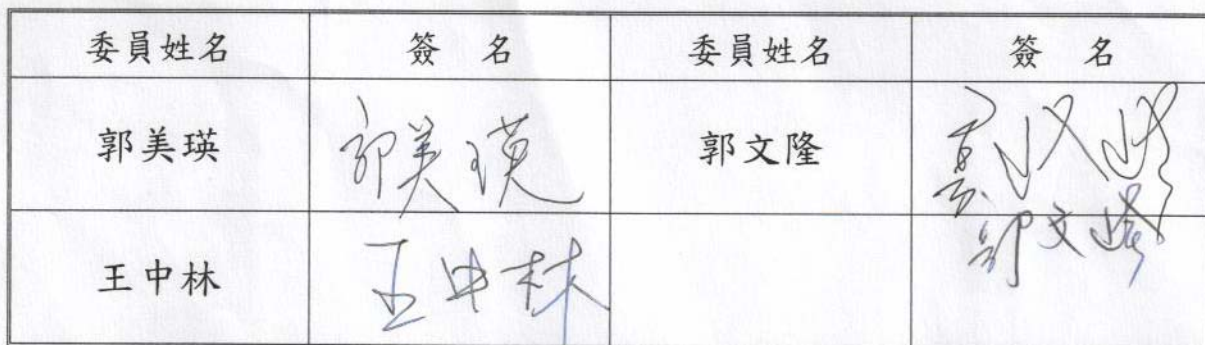 委員姓名 簽 名 委員姓名 簽 名
郭美瑛 郭美瑛 郭文隆
郭文隆
王中林 王中林